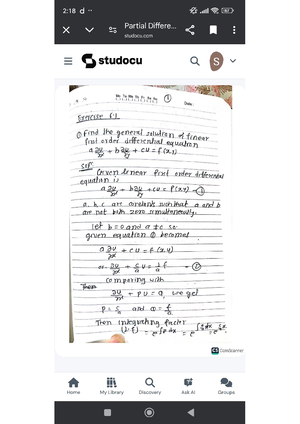 2:18 d ··
Partial Differe...
studocu.com
studocu
S
Mo Tu We Th Fr Sa Su
Date:
Exercise 6.1
① Find the general solution of linear
first order differential equation
a ∂u/∂x + b ∂u/∂y + cu = f(x,y)
Given linear first order differential
equation is
a ∂u/∂x + b ∂u/∂y + cu = f(x,y) —①
a, b, c are constants such that a and b
are not both zero simultaneously.
Let b=0 and a≠0 so
given equation ① becomes
a ∂u/∂x + cu = f(x,y)
or ∂u/∂x + c/a u = 1/a f —②
Comparing with
Then
∂u/∂x + Pu = Q, we get
P = c/a and Q = f/a
Then integrating factor
(I.F) = e^∫P dx = e^∫c/a dx = e^c/a x
CS CamScanner
Home
My Library
Discovery
Ask AI
Groups